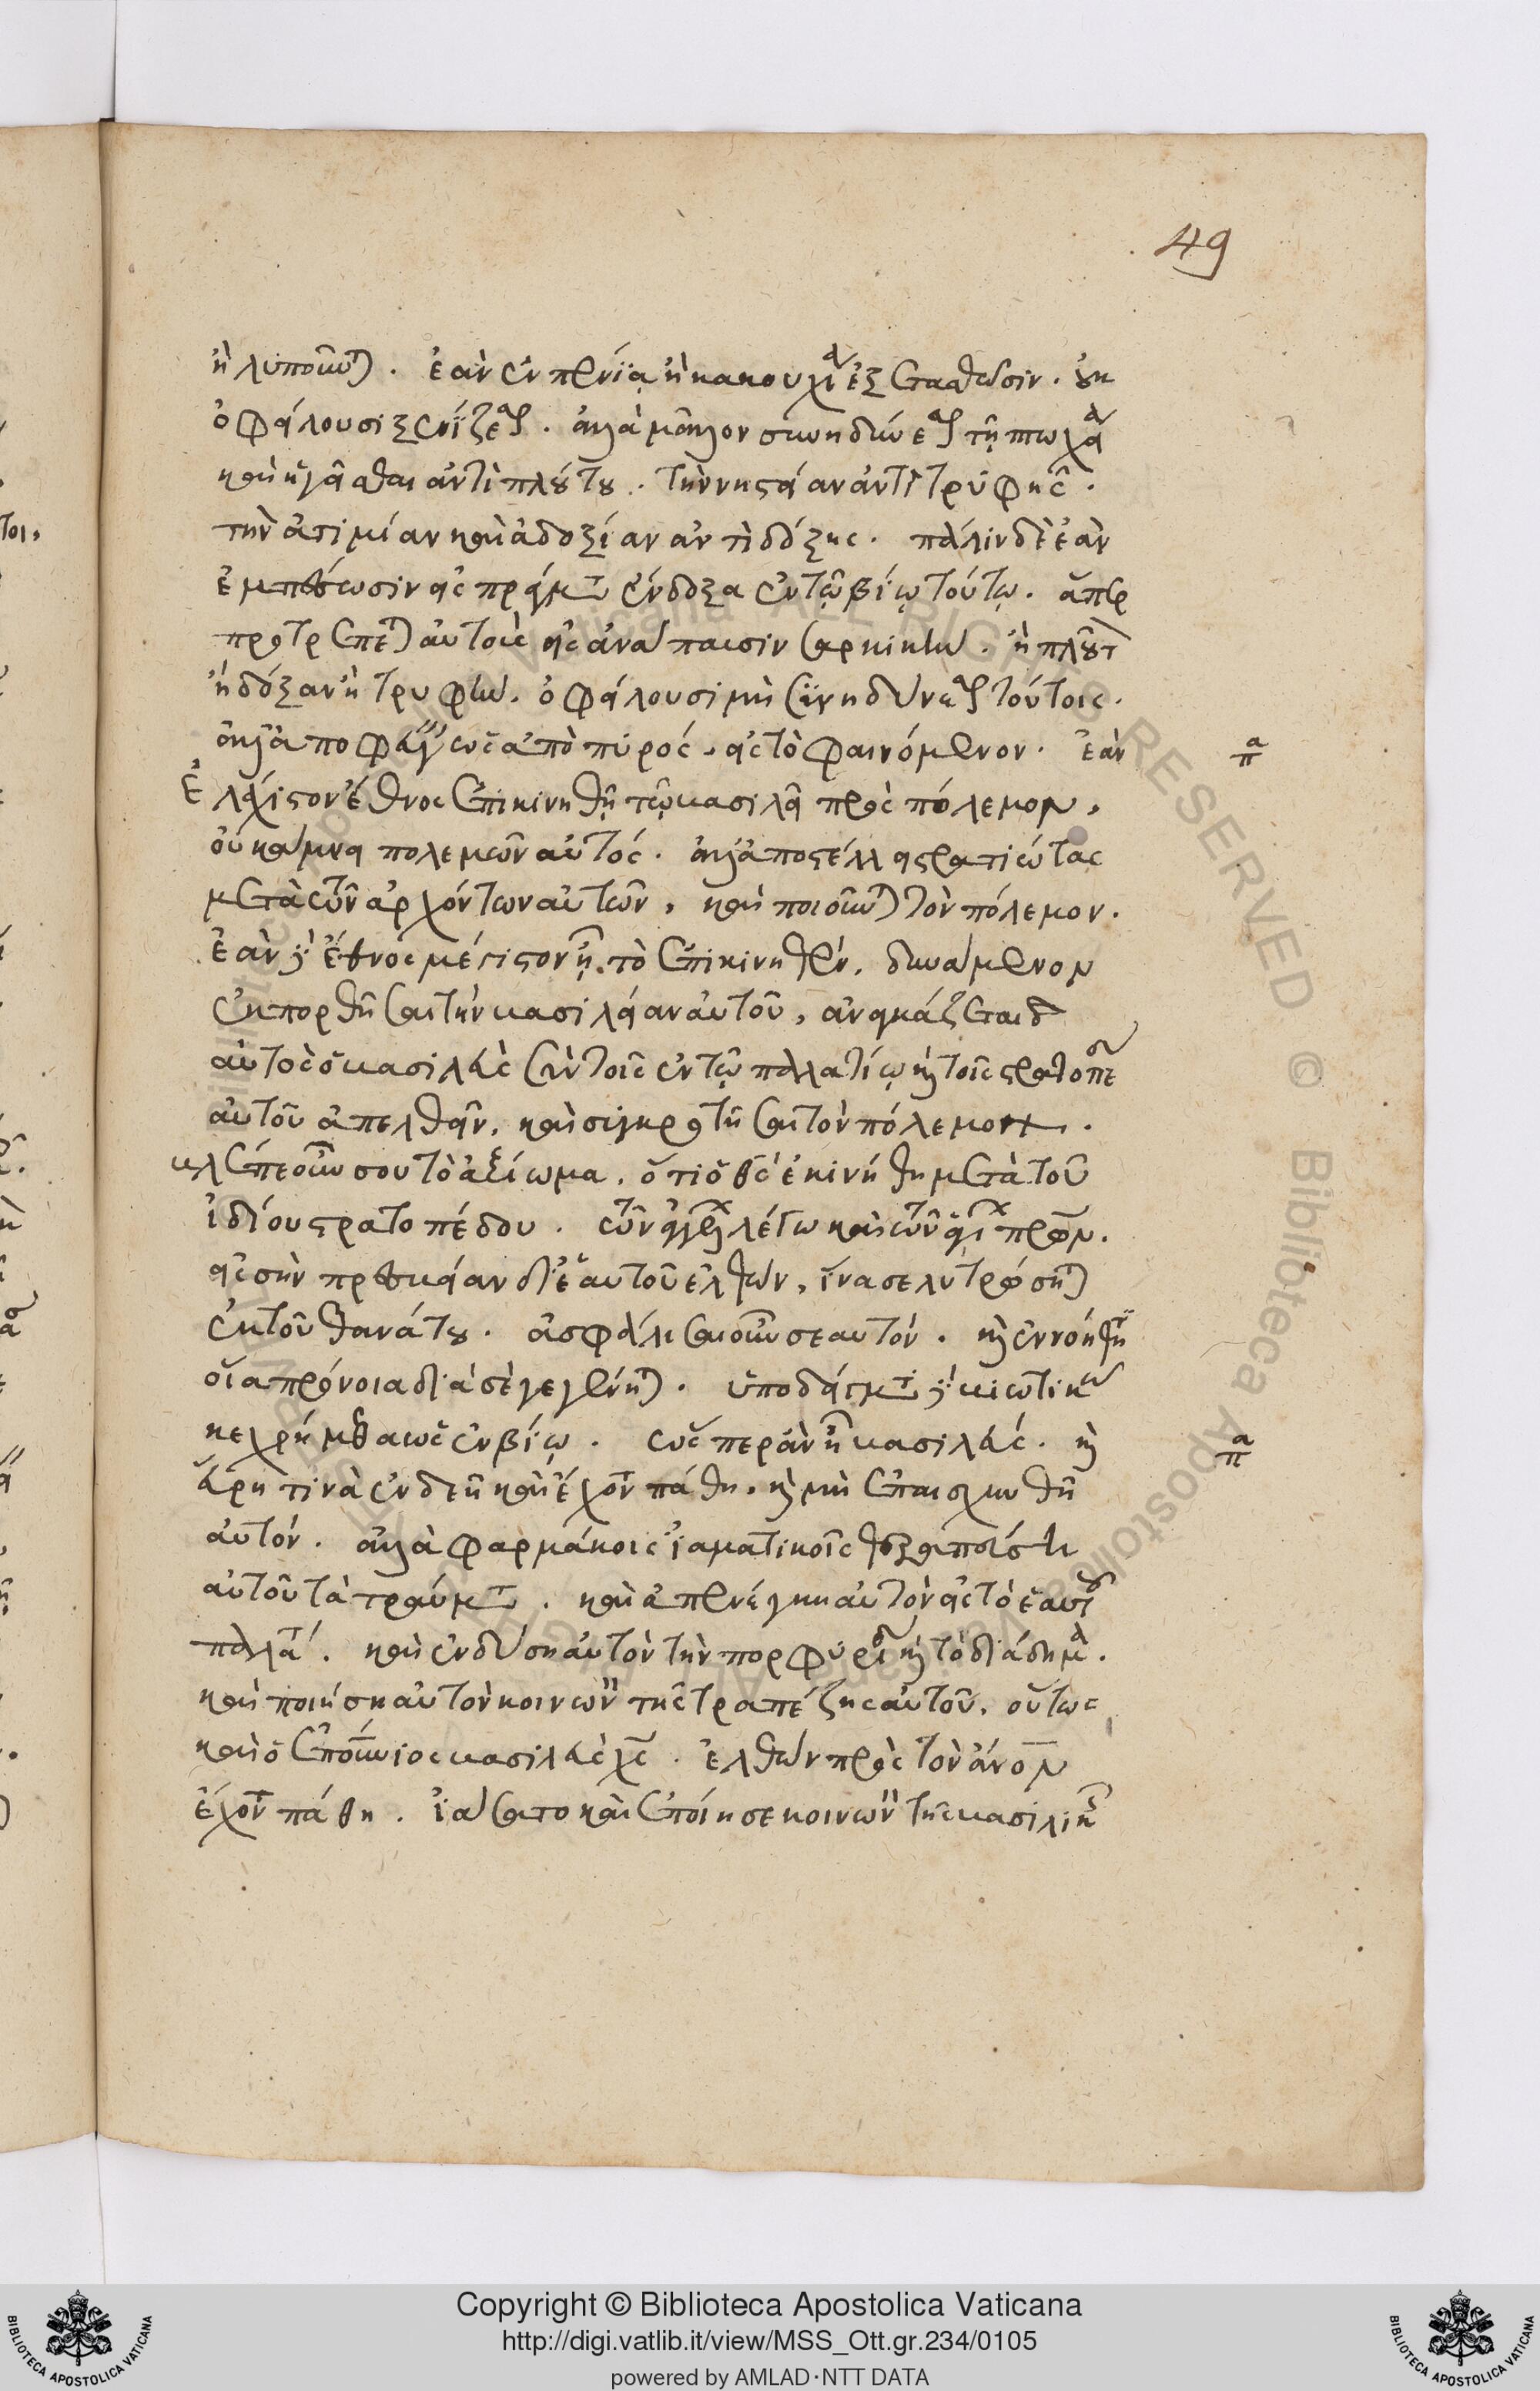 49
ἢ λυποῦνται. ἐὰν ἐν πενίᾳ ἢ κακουχίᾳ ἐξετασθῶσιν. οὐκ
ὀφείλουσι ξενίζεσθαι. ἀλλὰ μᾶλλον συνηδύνεσθαι τῇ πτωχείᾳ
καὶ ἡγεῖσθαι ἀντὶ πλούτου. τὴν νηστείαν ἀντὶ τρυφῆς.
τὴν ἀτιμίαν καὶ ἀδοξίαν ἀντὶ δόξης. πάλιν δὲ ἐὰν
ἐμπέσωσιν εἰς πράγματα ἔνδοξα ἐν τῷ βίῳ τούτῳ. ἅπερ
προτρέπεται αὐτοὺς εἰς ἀνάπαυσιν σαρκικήν. ἢ πλοῦτον
ἢ δόξαν ἢ τρυφήν. ὀφείλουσι μὴ συνηδύνεσθαι τούτοις.
ἀλλ' ἀποφεύγειν ὡς ἀπὸ πυρός. εἰς τὸ φαινόμενον. ἐὰν
ἐλάχιστον ἔθνος ἐπικινηθῇ τῷ βασιλεῖ πρὸς πόλεμον,
οὐ κάμνει πολεμῶν αὐτός. ἀλλ' ἀποστέλλει στρατιώτας
μετὰ τῶν ἀρχόντων αὐτῶν, καὶ ποιοῦνται τὸν πόλεμον.
ἐὰν δὲ ἔθνος μέγιστον ᾖ τὸ ἐπικινηθέν, δυνάμενον
ἐκπορθῆσαι τὴν βασιλείαν αὐτοῦ, ἀναγκάζεται
αὐτὸς ὁ βασιλεὺς σὺν τοῖς ἐν τῷ παλατίῳ καὶ τοῖς στρατοπέδοις
αὐτοῦ ἀπελθεῖν, καὶ συγκροτῆσαι τὸν πόλεμον.
βλέπε οὖν σου τὸ ἀξίωμα. ὅτι ὁ θς ἐκινήθη μετὰ τοῦ
ἰδίου στρατοπέδου. τῶν ἀγγέλων λέγω καὶ τῶν ἁγίων πνάτων.
εἰς σὴν πρεσβείαν δι' ἑαυτοῦ ἐλθών, ἵνα σε λυτρώσηται
ἐκ τοῦ θανάτου. ἀσφάλισαι οὖν σεαυτόν. καὶ ἐννοήθητι
οἵα πρόνοια διὰ σὲ γεγένηται. ὑποδείγματι δὲ βιωτικῷ
κεχρήμεθα ὡς ἐν βίῳ. ὥσπερ ἐὰν ᾖ βασιλεύς. καὶ
εὕρῃ τινὰ ἐνδεῆ καὶ ἔχοντα πάθη. καὶ μὴ ἐπαισχυνθῇ
αὐτόν. ἀλλὰ φαρμάκοις ἰαματικοῖς θεραπεύσῃ
αὐτοῦ τὰ τραύματα. καὶ ἀπενέγκῃ αὐτὸν εἰς τὸ ἑαυτοῦ
παλάτιον. καὶ ἐνδύσῃ αὐτὸν τὴν πορφύραν καὶ τὸ διάδημα.
καὶ ποιήσῃ αὐτὸν κοινωνὸν τῆς τραπέζης αὐτοῦ. οὕτως
καὶ ὁ ἐπουράνιος βασιλεὺς χς. ἐλθὼν πρὸς τὸν ἄνον
ἔχοντα πάθη. ἰάσατο καὶ ἐποίησε κοινωνὸν τῆς βασιλικῆς
Copyright © Biblioteca Apostolica Vaticana
http://digi.vatlib.it/view/MSS_Ott.gr.234/0105
powered by AMLAD·NTT DATA